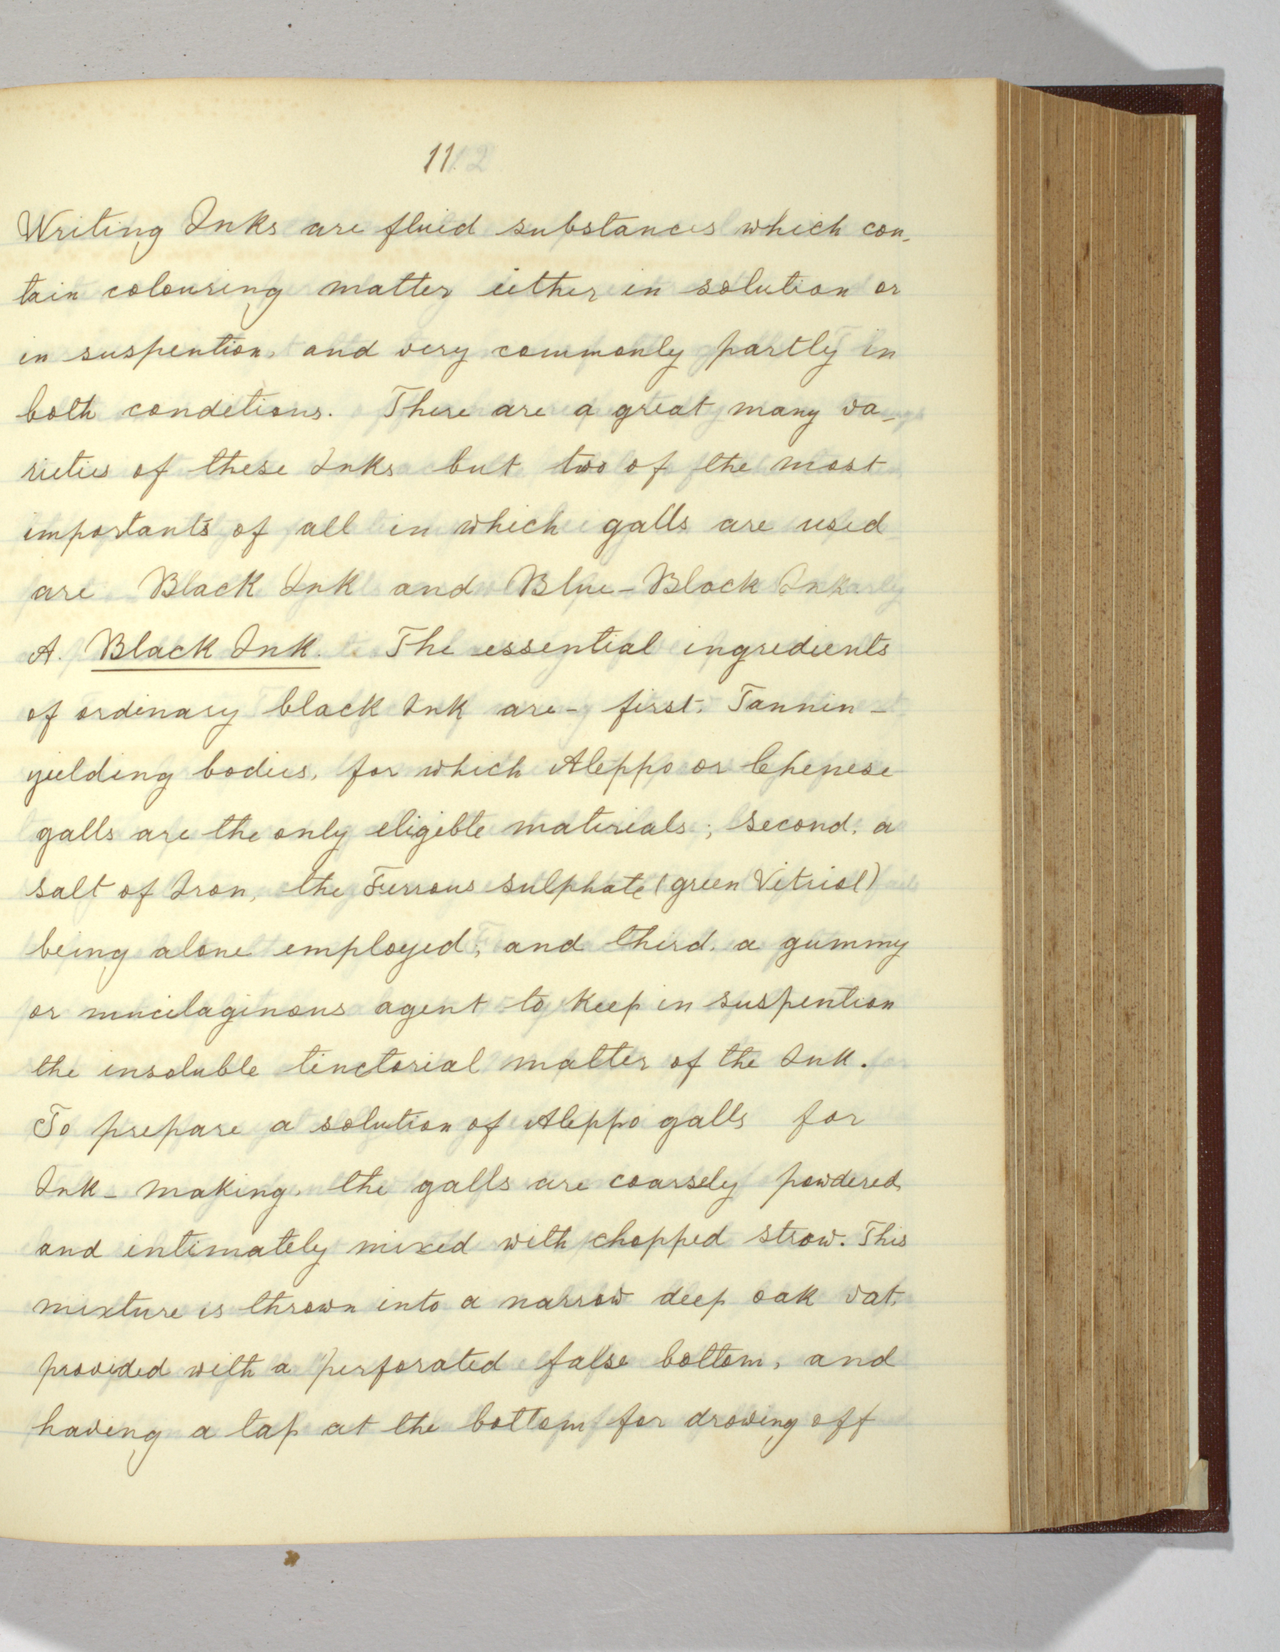 11
Writing Inks are fluid substances which con-
tain colouring matter either in solution or
in suspention, and very commonly partly in
both conditions. There are a great many va-
rieties of these Inks but two of the most
importants of all in which galls are used
are Black Ink and Blue-Black Ink
A. Black Ink. The essential ingredients
of ordinary black Ink are- first, Tannin-
yielding bodies, for which Aleppo or Chinese
galls are the only eligible materials; second, a
salt of Iron, the Ferrous sulphate (green Vitriol)
being alone employed; and third, a gummy
or mucilaginous agent to keep in suspention
the insoluble tinctorial matter of the Ink.
To prepare a solution of Aleppo galls for
Ink-making, the galls are coarsely powdered
and intimately mixed with chopped straw. This
mixture is thrown into a narrow deep oak vat,
provided with a perforated false bottom, and
having a tap at the bottom for drawing off